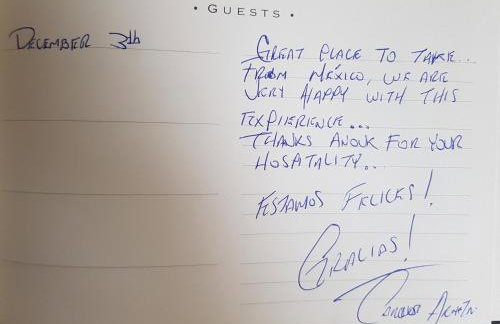 • GUESTS •
DECEMBER 3th
GREAT PLACE TO TAKE...
FROM MÉXICO, WE ARE
VERY HAPPY WITH THIS
EXPIERENCE...
THANKS ANOUK FOR YOUR
HOSPITALITY...
ESTAMOS FELICES!
GRACIAS!